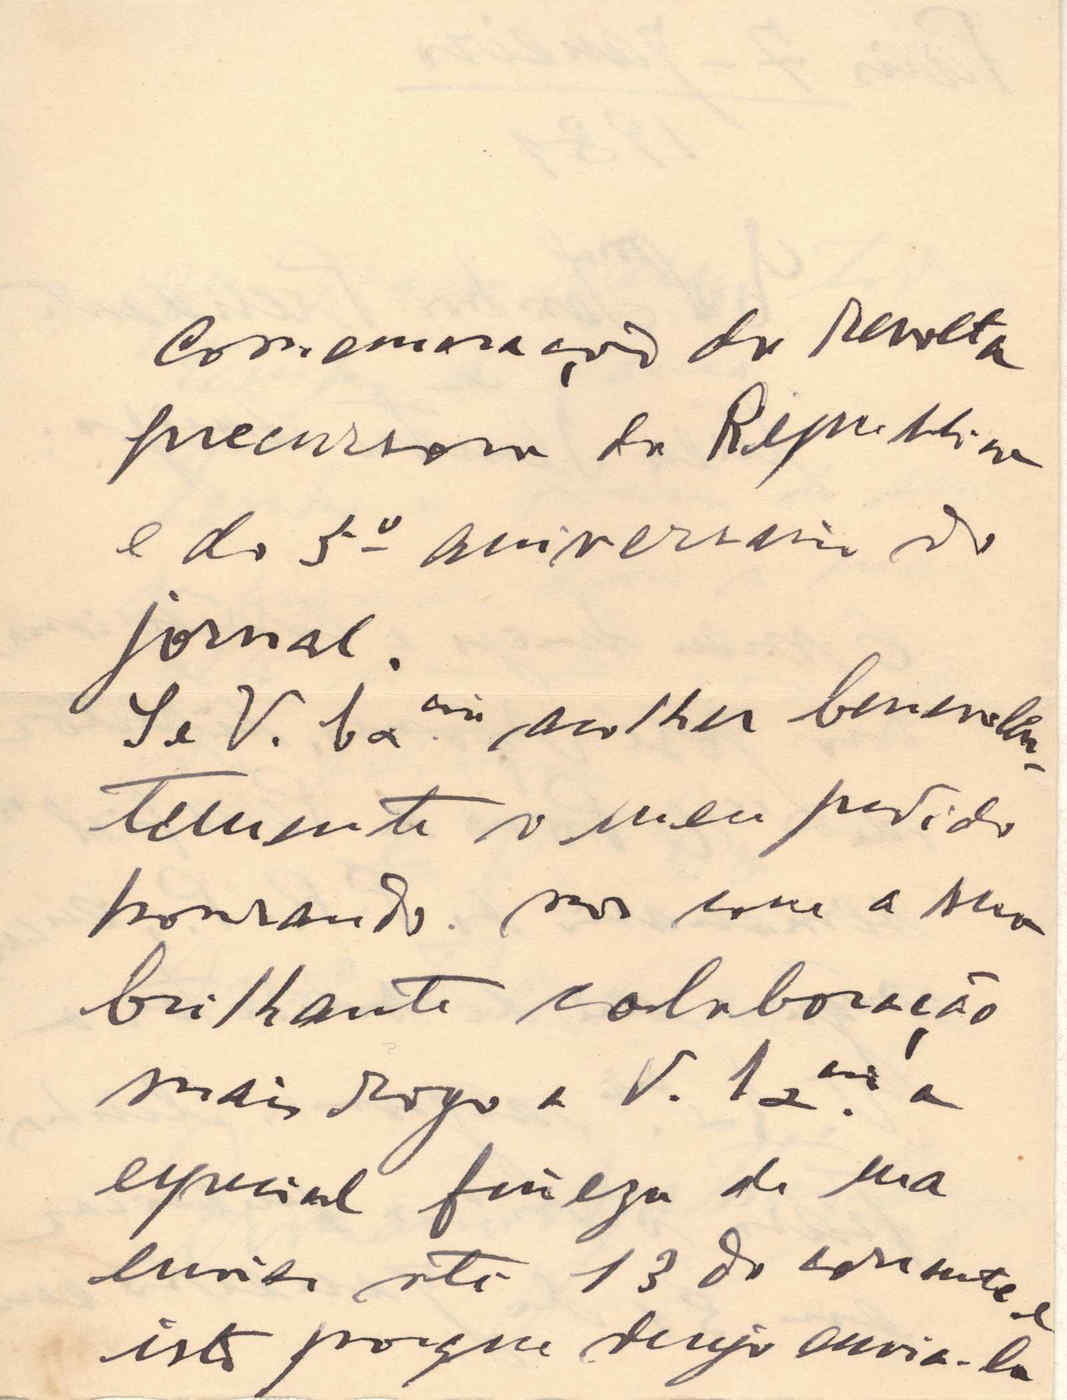 comemoração da Revolta
precursora da Republica
e do 5º aniversario do
jornal.
Se V. Ex.cia acolher benevolen-
temente o meu pedido
honrando-nos com a sua
brilhante colaboração
mais rogo a V. Ex.cia a
especial fineza de ma
enviar até 13 do corrente e
isto porque desejo envia-la